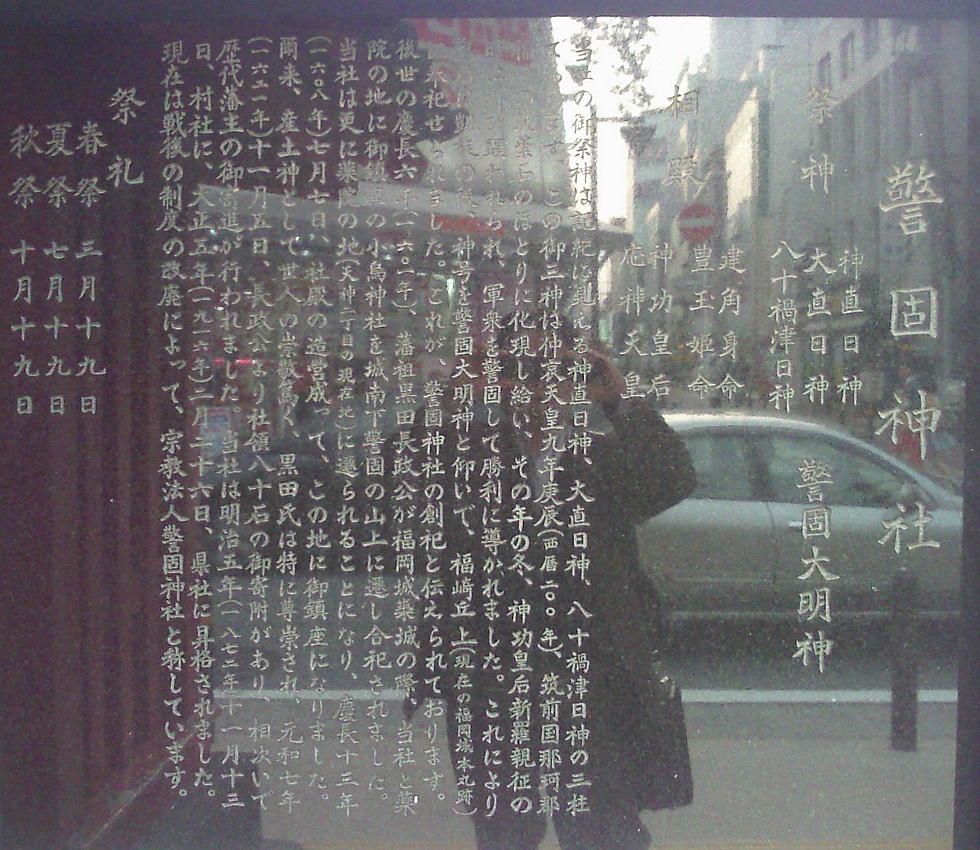 警固神社
祭神
神直日神
大直日神
八十禍津日神
警固大明神
相殿
建角身命
豊玉姫命
神功皇后
応神天皇
当社の御祭神は記紀に見える神直日神、大直日神、八十禍津日神の三柱
この御三神は仲哀天皇九年庚辰(西暦二〇〇年)、筑前国那珂郡
のほとりに化現し給い、その年の冬、神功皇后新羅親征の
顕われられ、軍衆を警固して勝利に導かれました。これにより
神号を警固大明神と仰いで、福崎丘上(現在の福岡城本丸跡)
祀せられました。これが、警固神社の創祀と伝えられております。
後世の慶長六年(一六〇一年)、藩祖黒田長政公が福岡城築城の際、当社と薬
院の地に御鎮座の小烏神社を城南下警固の山上に遷し合祀されました。
当社は更に薬院の地(天神二丁目の現在地)に遷られることになり、慶長十三年
(一六〇八年)七月七日、社殿の造営成って、この地に御鎮座になりました。
爾来、産土神として世人の崇敬篤く、黒田氏は特に尊崇され、元和七年
(一六二一年)十一月五日、長政公より社領八十石の御寄附があり、相次いで
歴代藩主の御寄進が行われました。当社は明治五年(一八七二年)十一月十三
日、村社に、大正五年(一九一六年)二月二十六日、県社に昇格されました。
現在は戦後の制度の改廃によって、宗教法人警固神社と称しています。
祭礼
春祭 三月十九日
夏祭 七月十九日
秋祭 十月十九日